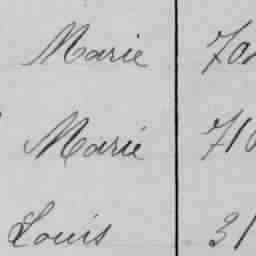 Marie
Marie
Louis 31